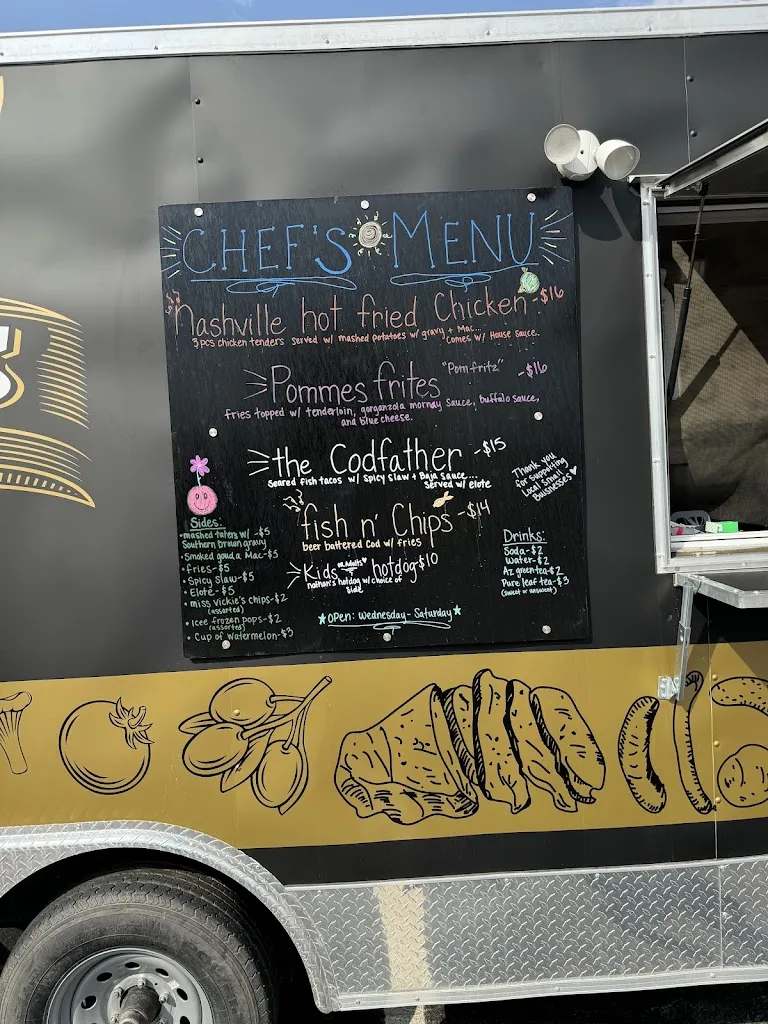 S
CHEF'S MENU
Nashville hot fried Chicken -$16
3pcs chicken tenders served w/ mashed potatoes w/ gravy + Mac...
Comes w/ House sauce.
Pommes frites "Pom-fritz" -$16
fries topped w/ tenderloin, gorganzola mornay sauce, buffalo sauce,
and blue cheese.
the Codfather -$15
Seared fish tacos w/ spicy slaw + Baja sauce...
Served w/ elote
Thank you
for supporting
Local Small
Businesses
fish n' Chips -$14
beer battered Cod w/ fries
Kids or Adults hotdog -$10
nathan's hotdog w/ choice of
side
☆ OPEN: Wednesday - Saturday ☆
Sides:
• mashed taters w/ -$5
Southern brown gravy
• Smoked gouda Mac-$5
• fries-$5
• Spicy slaw-$5
• Elote-$5
• miss vickie's chips-$2
(assorted)
• Icee frozen pops-$2
(assorted)
• Cup of watermelon-$3
Drinks:
Soda-$2
Water-$2
Az green tea-$2
Pure leaf tea-$3
(sweet or unsweet)